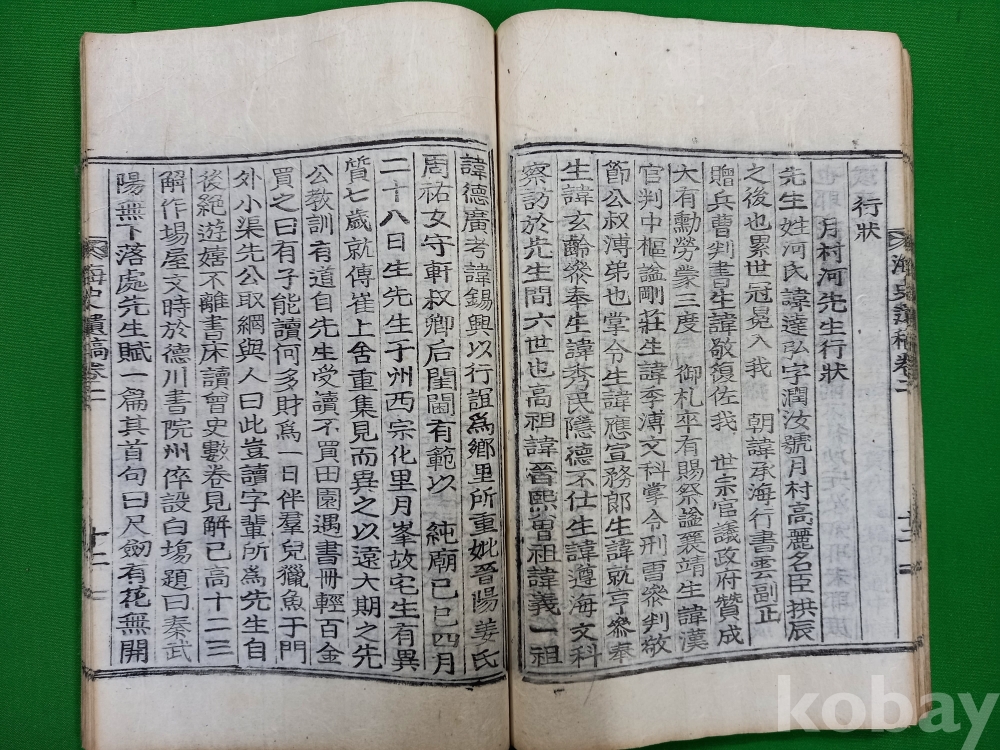 行狀
月村河先生行狀
先生姓河氏諱達弘字潤汝號月村高麗名臣拱辰
之後也累世冠冕入我 朝諱承海行書雲副正
贈兵曹判書生諱敬復佐我 世宗官議政府贊成
大有勳勞蒙三度 御札卒有賜祭諡襄靖生諱漢
官判中樞諡剛莊生諱季溥文科掌令刑曹參判敬
節公叔溥弟也掌令生諱應宣務郎生諱就亨參奉
生諱玄齡參奉生諱秀民隱德不仕生諱遵海文科
察訪於先生間六世也高祖諱晉熙曾祖諱義一祖
海史遺稿卷二
十二
諱德廣考諱錫興以行誼爲鄉里所重妣晉陽姜氏
周祐女守軒叔卿后閨閫有範以 純廟己巳四月
二十八日生先生于州西宗化里月峯故宅生有異
質七歲就傅崔上舍重集見而異之以遠大期之先
公教訓有道自先生受讀不買田園遇書冊輕百金
買之曰有子能讀何多財爲一日伴羣兒獵魚于門
外小渠先公取網與人曰此豈讀字輩所爲先生自
後絶遊嬉不離書床讀會史數卷見解已高十二三
解作場屋文時於德川書院州倅設白塲題曰秦武
陽無下落處先生賦一篇其首句曰尺劒有花無開
海史遺稿卷二
十二
kobay